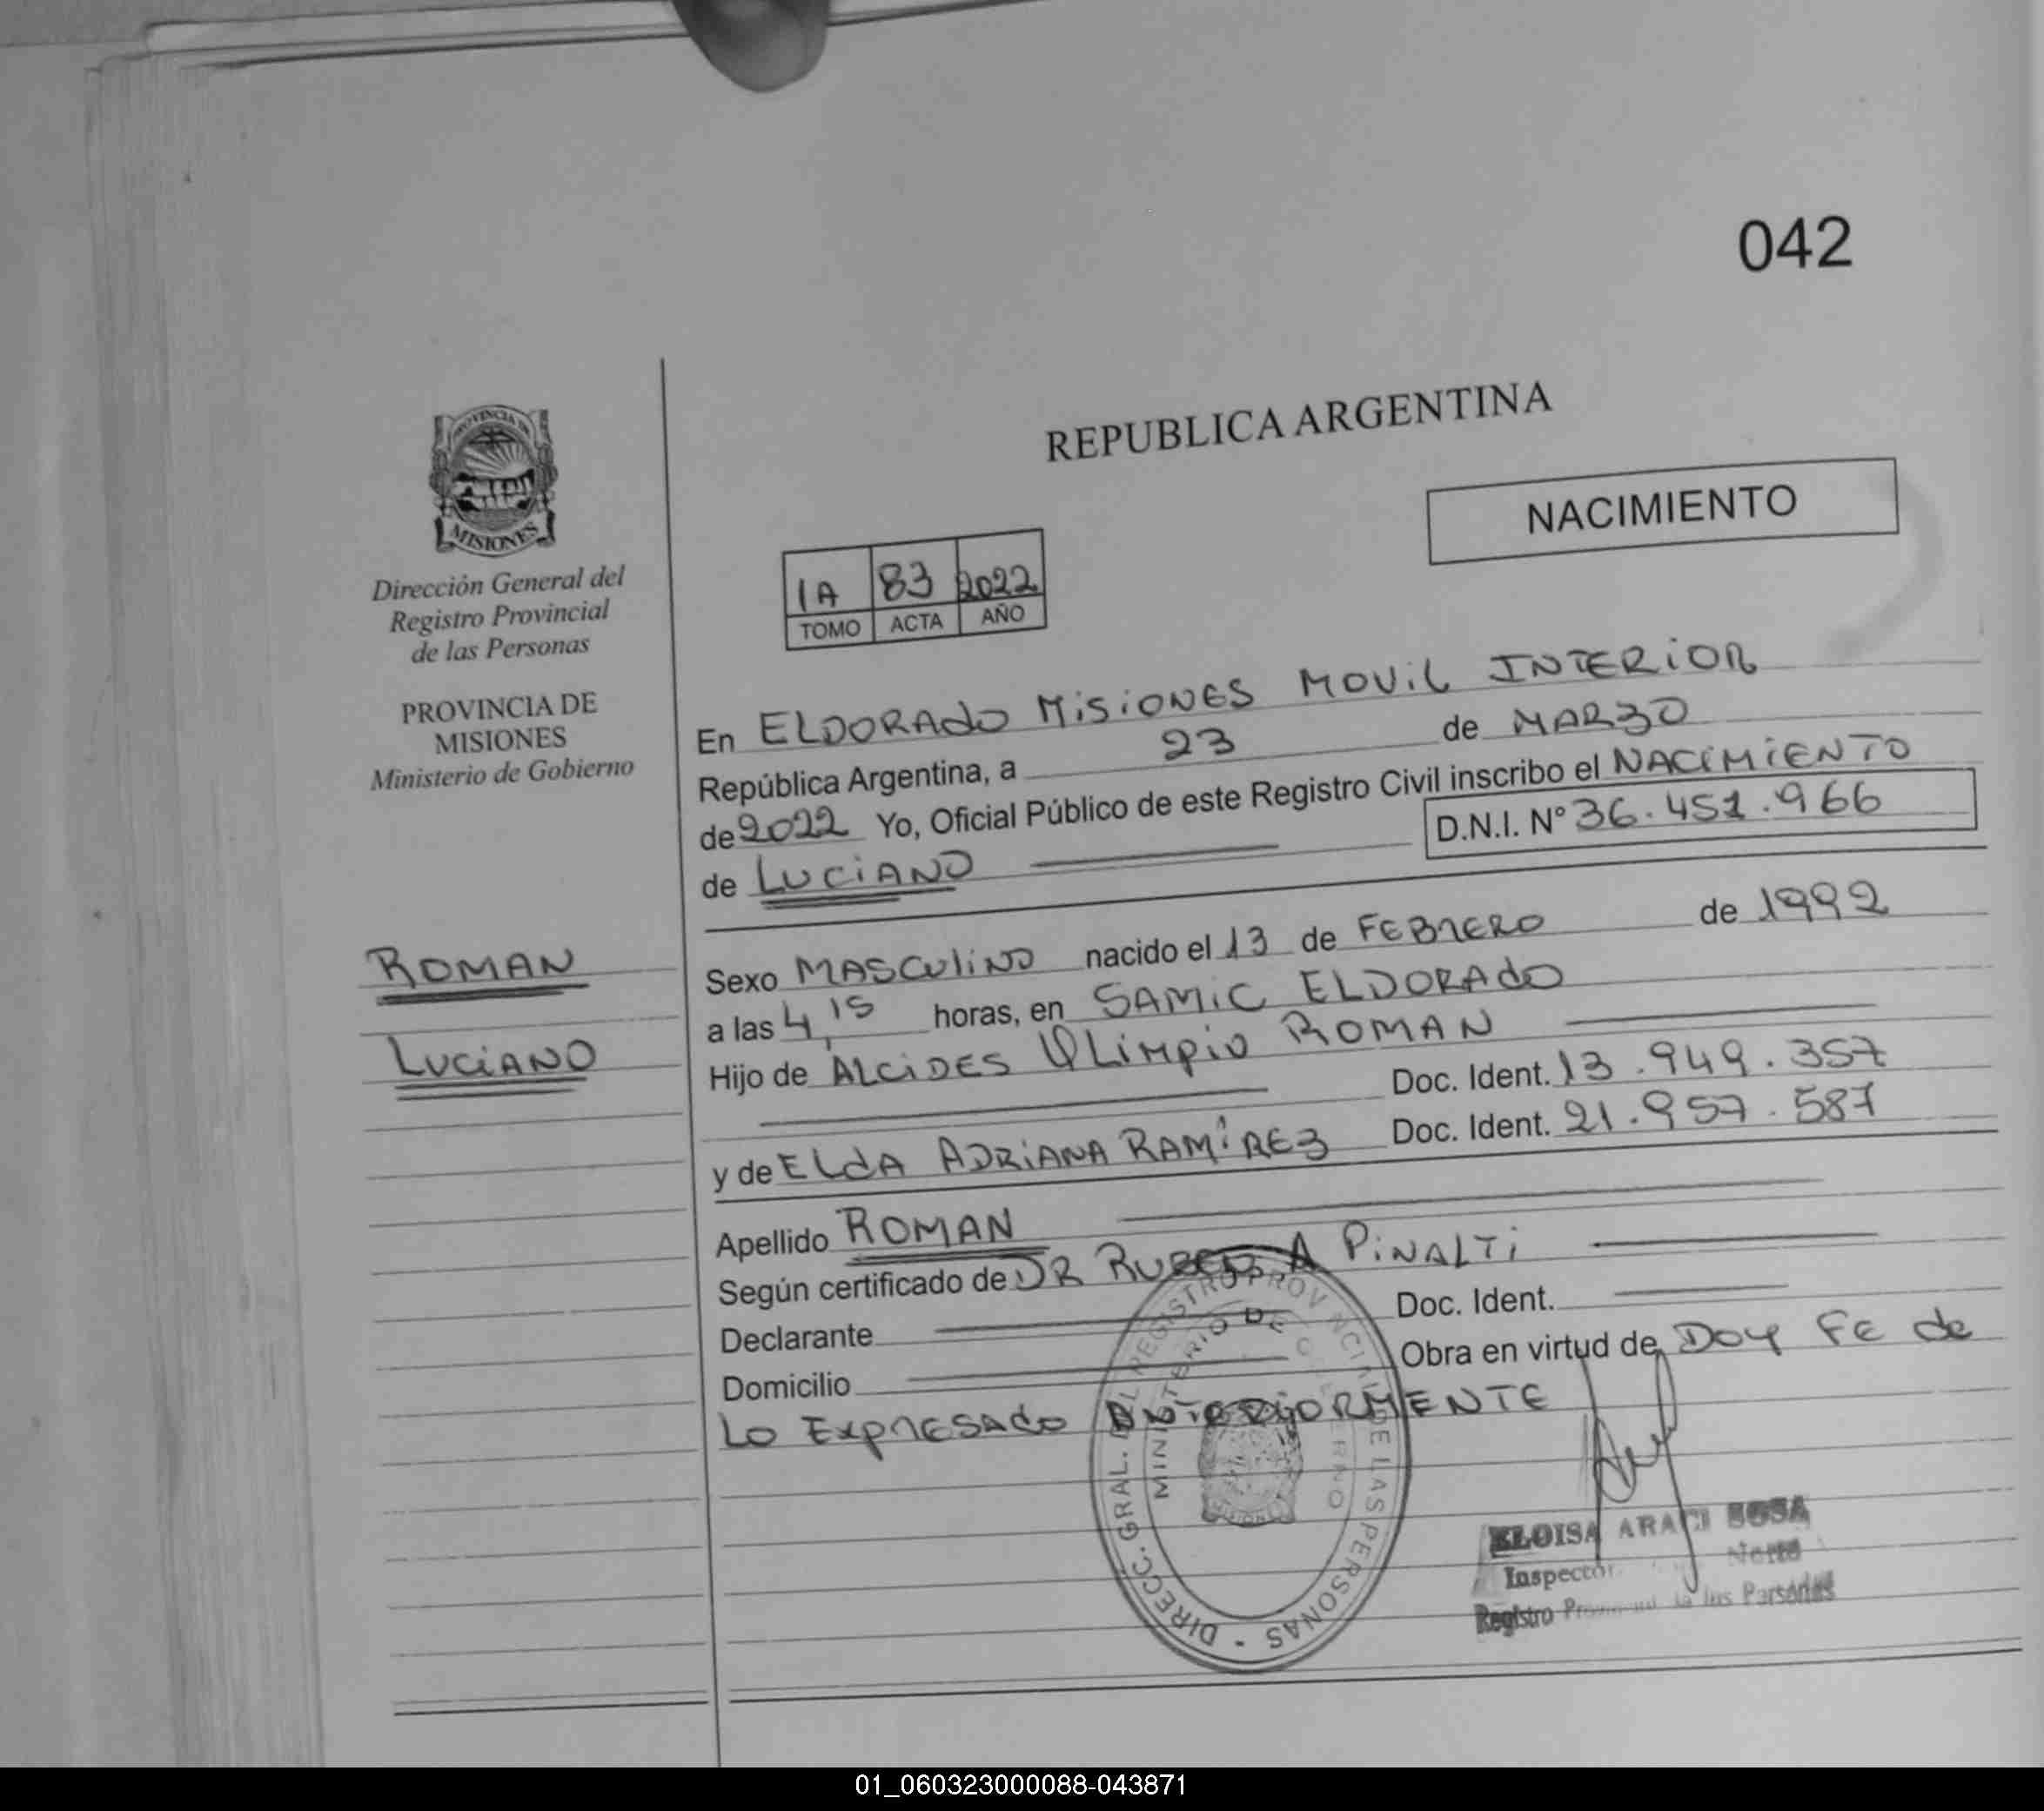 042
PROVINCIA DE
MISIONES
Dirección General del
Registro Provincial
de las Personas
PROVINCIA DE
MISIONES
Ministerio de Gobierno
ROMAN
LUCIANO
REPUBLICA ARGENTINA
NACIMIENTO
1A 83 2022
TOMO ACTA AÑO
En ELDORADO MISIONES MOVIL INTERIOR
República Argentina, a 23 de MARZO
de 2022 Yo, Oficial Público de este Registro Civil inscribo el NACIMIENTO
de LUCIANO D.N.I. N° 36.451.966
Sexo MASCULINO nacido el 13 de FEBRERO de 1992
a las 4,15 horas, en SAMIC ELDORADO
Hijo de ALCIDES OLIMPIO ROMAN
Doc. Ident. 13.949.357
y de ELDA ADRIANA RAMÍREZ Doc. Ident. 21.957.587
Apellido ROMAN
Según certificado de DR RUBEN A PINALTI
Declarante Doc. Ident.
Domicilio Obra en virtud de DOY FE de
LO EXPRESADO ANTERIORMENTE
DIRECC. GRAL. DEL REGISTRO PROVINCIAL DE LAS PERSONAS -
MINISTERIO DE GOBIERNO
ELOISA ARACI SOSA
Inspector Norte
Registro Provincial de las Personas
01_060323000088-043871